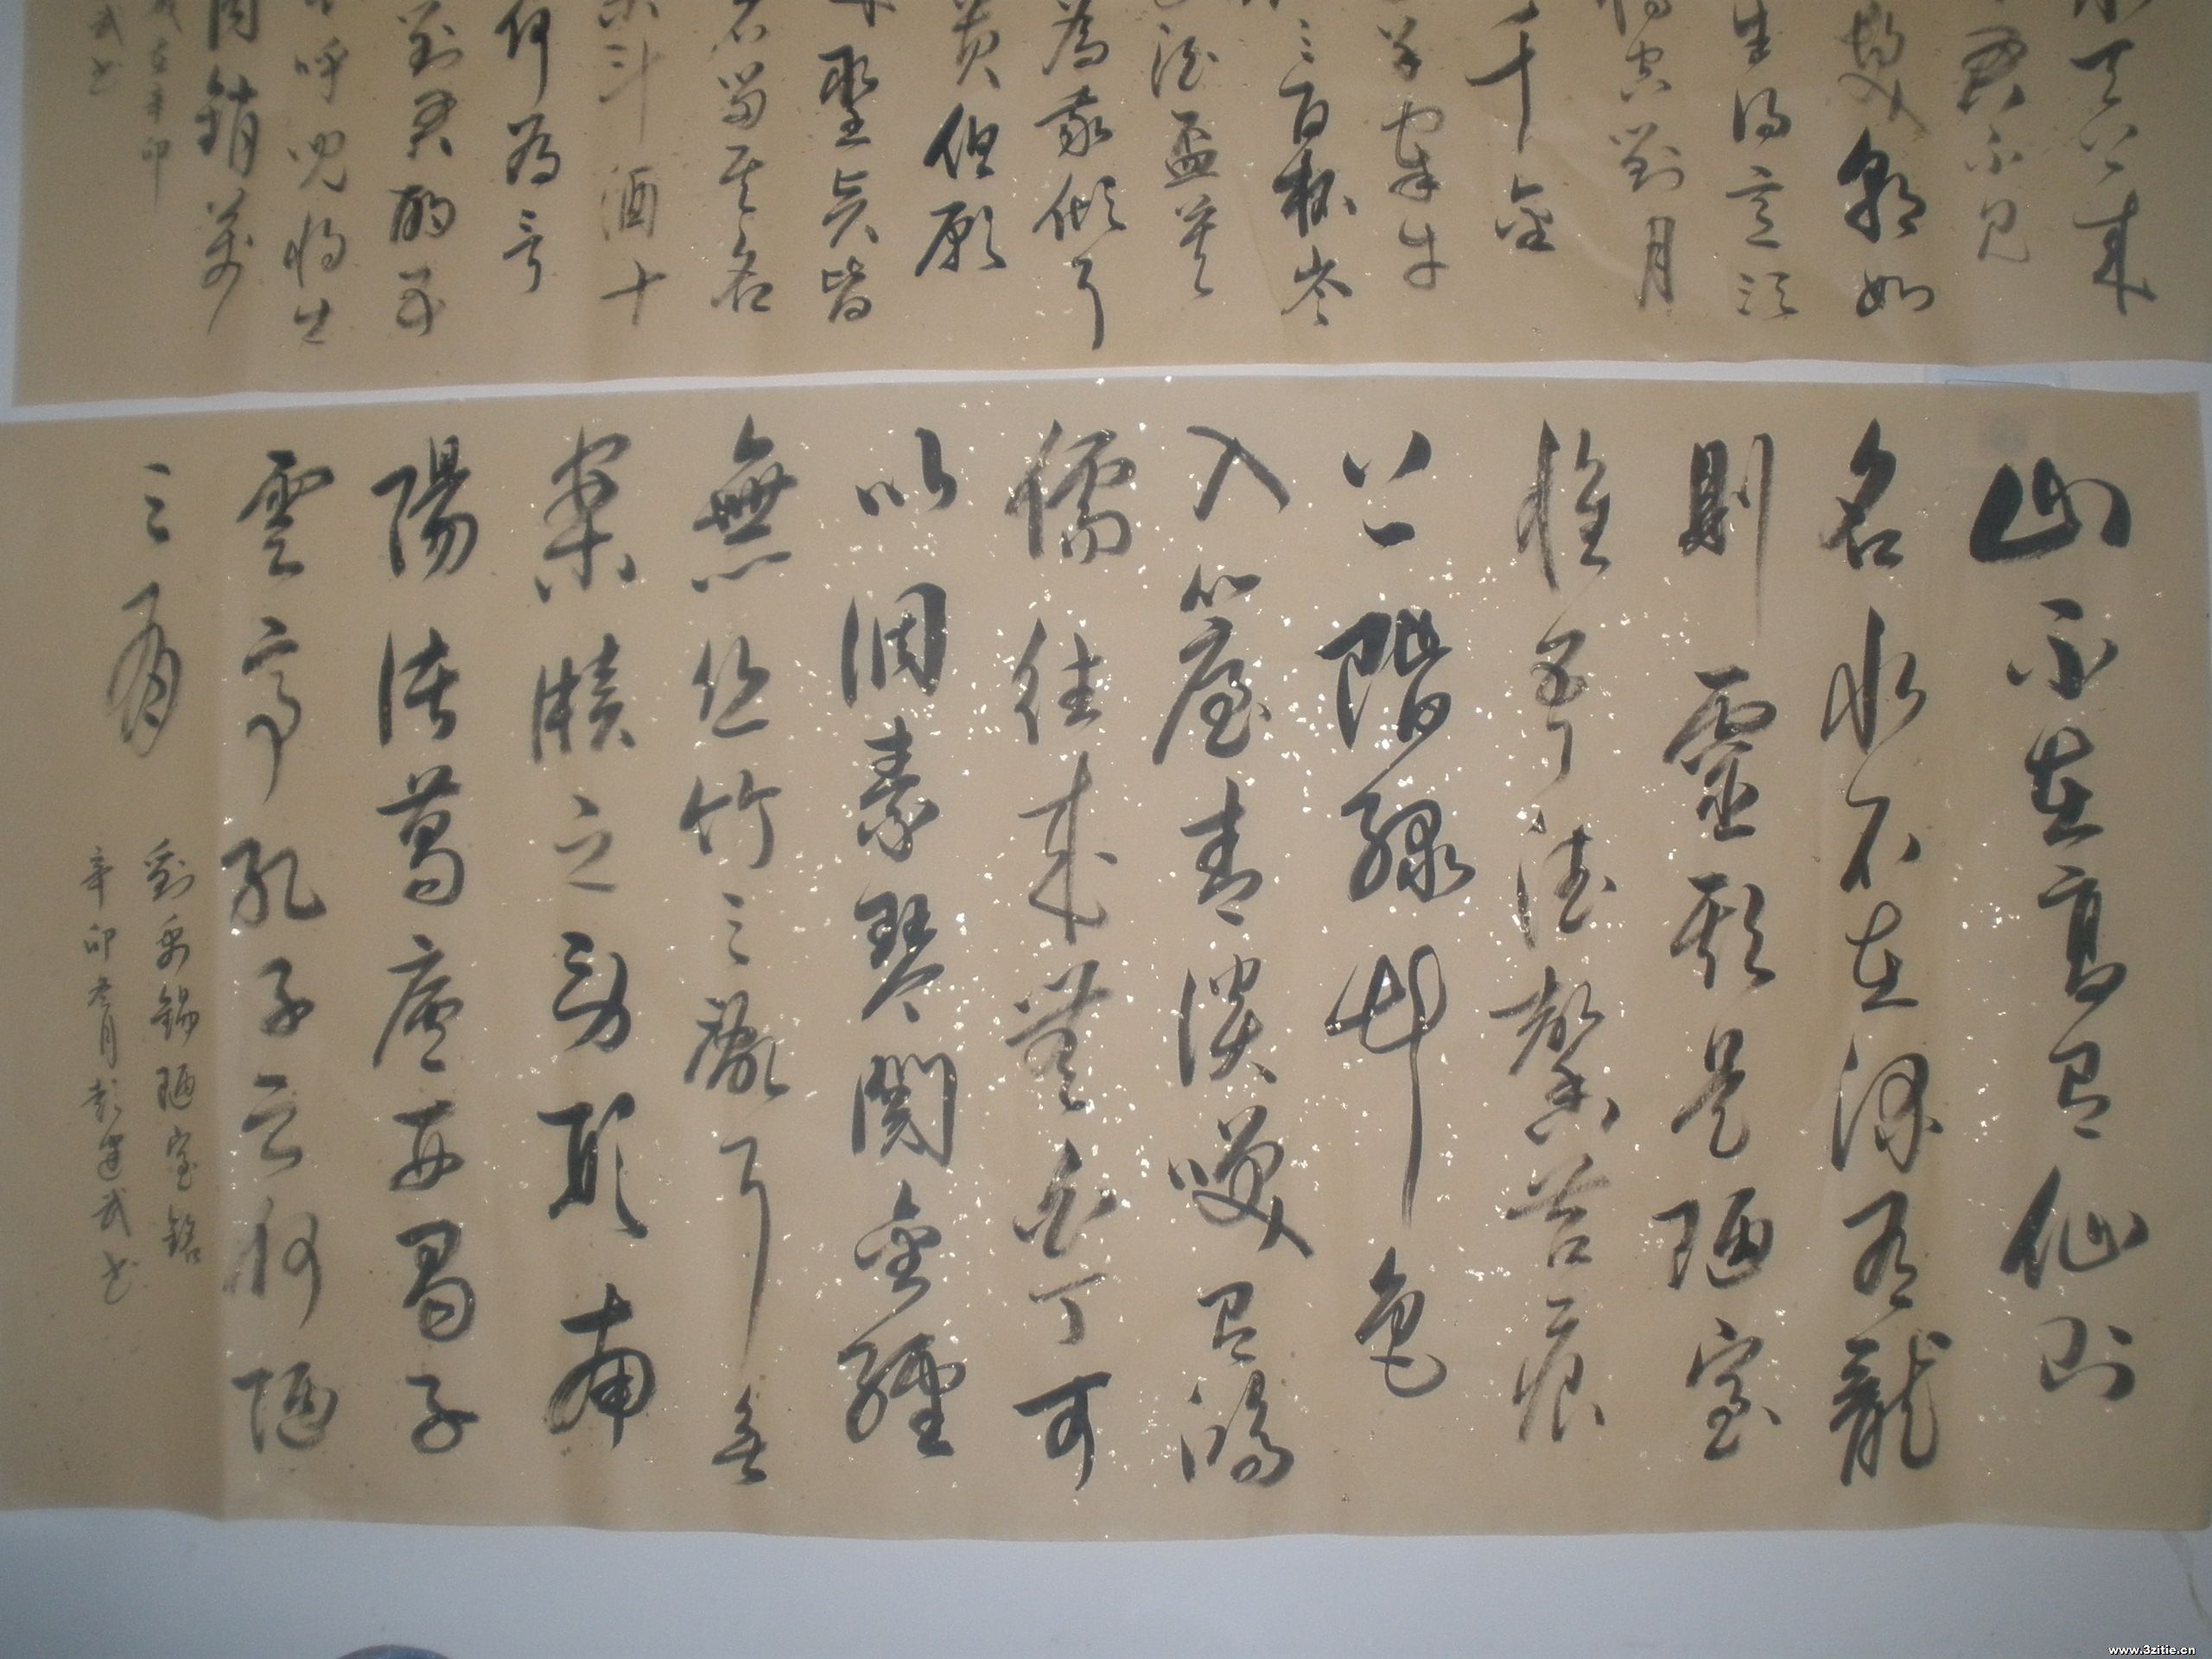 天上來
君不見
髮朝如
生得意須
空對月
千金
羊宰牛
三百杯岑
酒盃莫
為我傾耳
貴但願
聖賢皆
留其名
斗酒十
何為言
對君酌五
呼兒將出
同銷萬
辛卯
武書
山不在高有仙則
名水不在深有龍
則靈斯是陋室
惟吾德馨苔痕
上階綠草色
入簾青談笑有鴻
儒往來無白丁可
以調素琴閱金經
無絲竹之亂耳無
案牘之勞形南
陽諸葛廬西蜀子
雲亭孔子云何陋
之有
劉禹錫陋室銘
辛卯冬月彭建武書
www.3zitie.cn